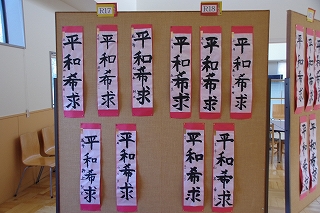 R17
R18
平和希求
平和希求
平和希求
平和希求
平和希求
平和希求
平和希求
平和希求
平和希求
平和希求